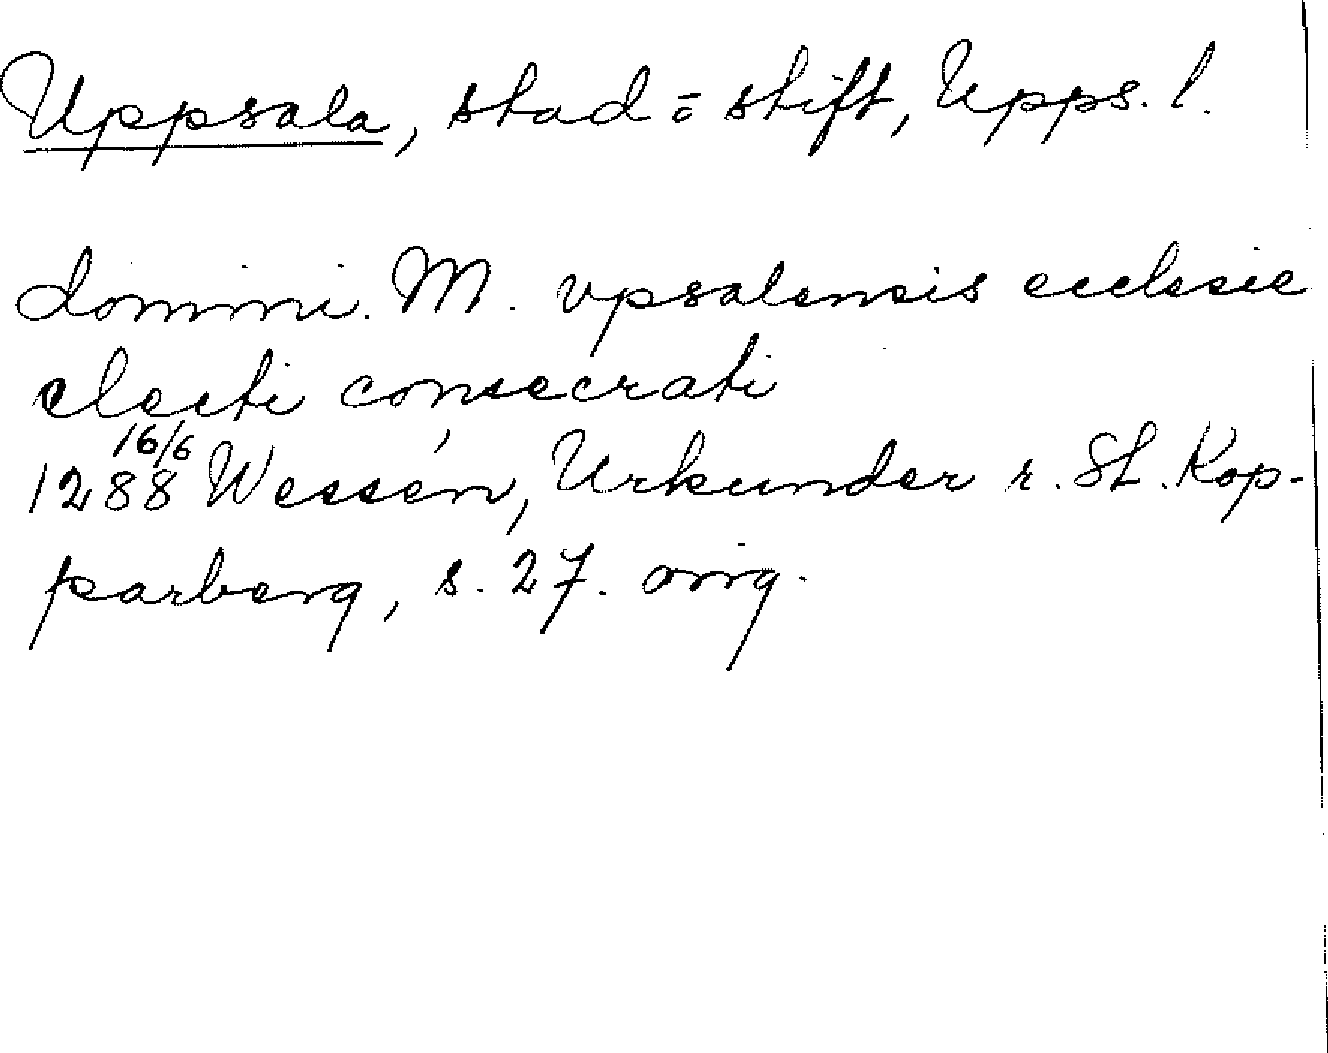 Uppsala, stad o stift, Upps. l.
domini. M. vpsalensis ecclesie
electi consecrati
16/6
1288 Wessén, Urkunder r. St. Kop-
parberg, s. 27. orig.